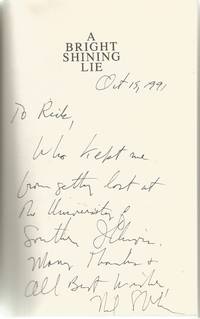 A
BRIGHT
SHINING
LIE
Oct 15, 1991
To Rick,
Who kept me
from getting lost at
the University of
Southern Illinois.
Many Thanks &
All Best Wishes
Neil